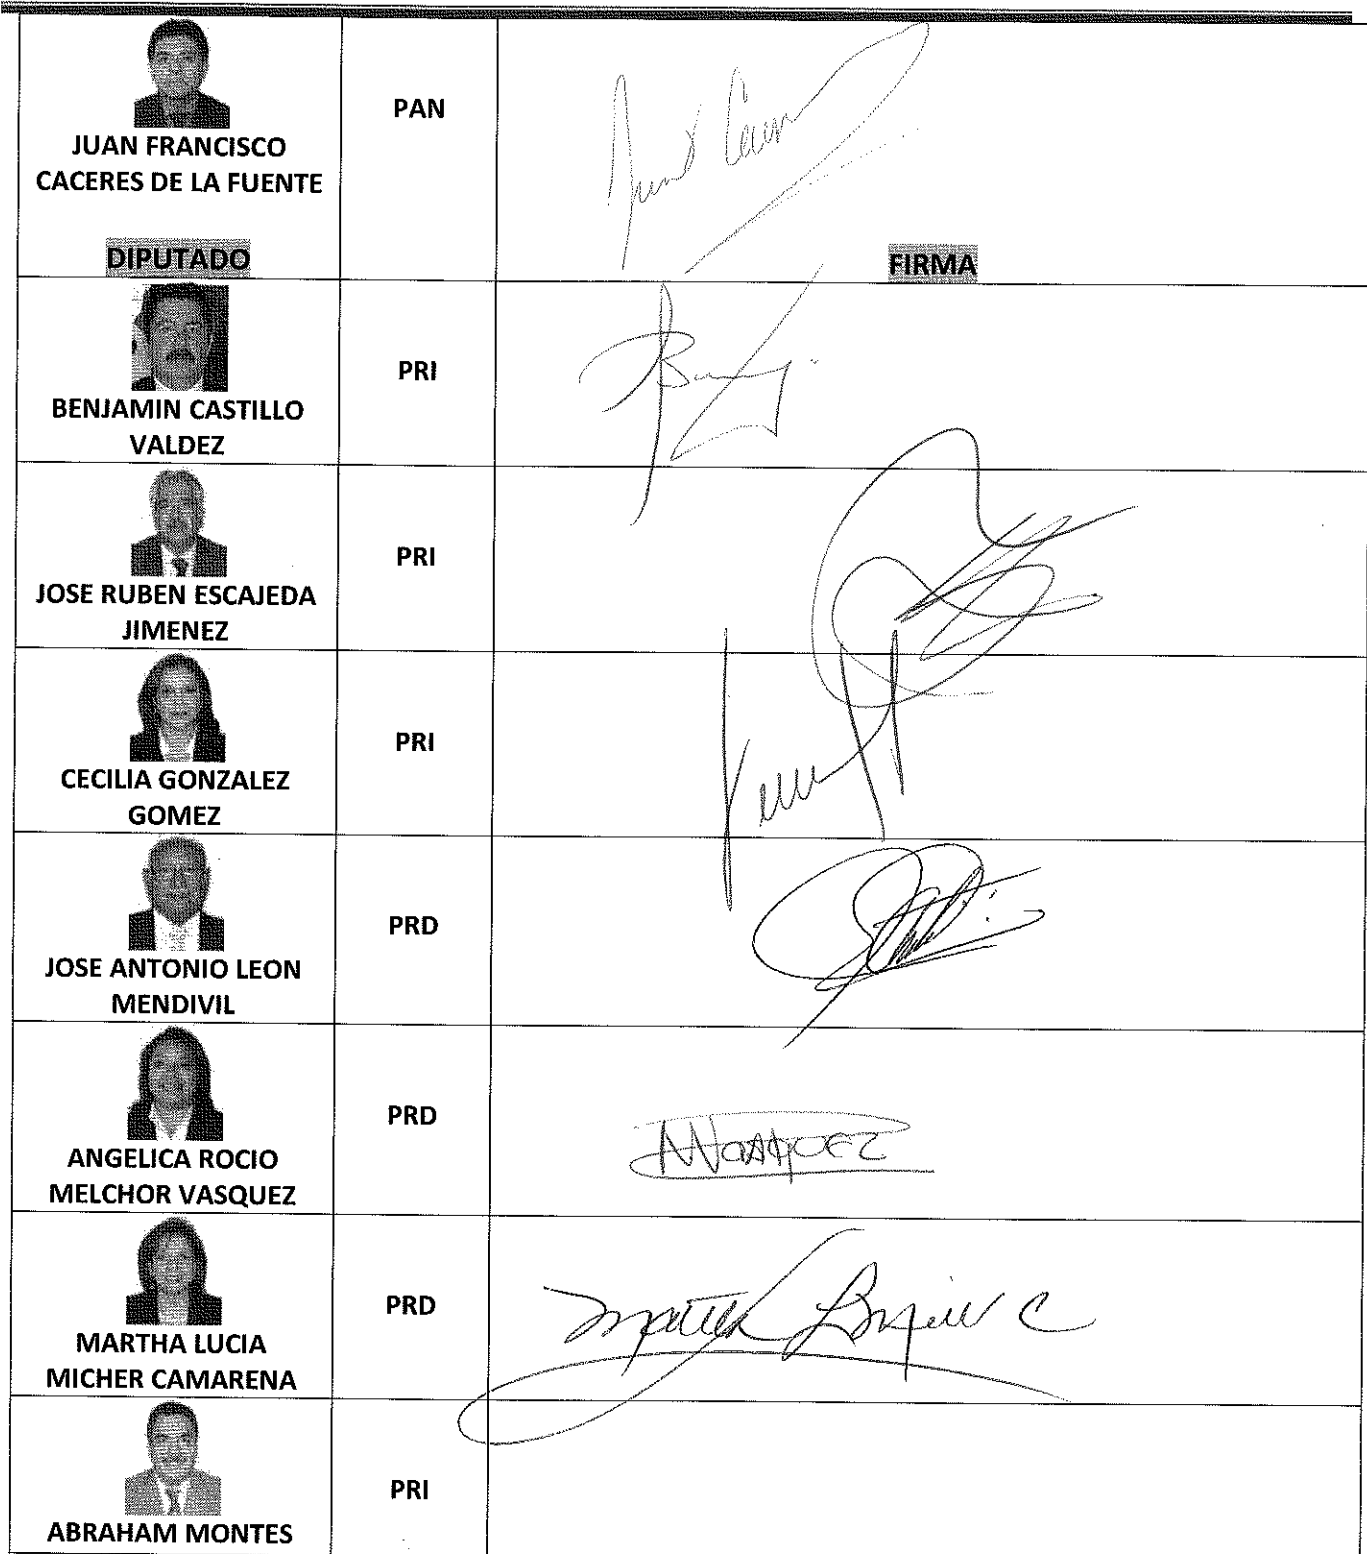 JUAN FRANCISCO
CACERES DE LA FUENTE
PAN
DIPUTADO
FIRMA
BENJAMIN CASTILLO
VALDEZ
PRI
JOSE RUBEN ESCAJEDA
JIMENEZ
PRI
CECILIA GONZALEZ
GOMEZ
PRI
JOSE ANTONIO LEON
MENDIVIL
PRD
ANGELICA ROCIO
MELCHOR VASQUEZ
PRD
MARTHA LUCIA
MICHER CAMARENA
PRD
ABRAHAM MONTES
PRI